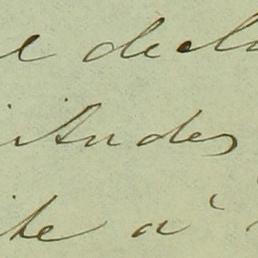 e decla
itudes
ite à